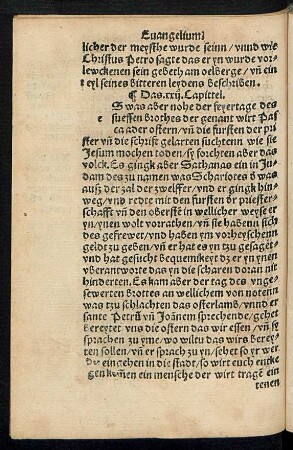 Euangelium
licher der meysthe wurde seinn/vnnd wie
Christus Petro sagte das er yn wurde vor⸗
lewckenen sein gebeth am oelberge/vn̄ ein
teyl seines bitteren leydens beschriben.
¶ Das.xxij.Capittel.
S was aber nohe der feyertage des
suessen brothes der genant wirt Pas
ca ader ostern/vn̄ die fursten der prie
ster vn̄ die schrift gelarten suchtenn wie sie
Jesum mochen toden/sy forchten aber das
volck. Es gingk aber Sathanas ein in Ju⸗
dam des zu namen was Schariotes d̓ was
auß der zal der zwelffer/vnd er gingk hin⸗
weg/vnd redte mit den fursten d̓ priester⸗
schafft vn̄ den oberstē in wellicher weyse er
yn/ynen wolt vorrathen/vn̄ sie habenn sich
des gefrewet/vnd haben ym vorheyschenn
geldt zu geben/vn̄ er hat es yn tzu gesaget
vnd hat gesucht bequemikeyt dz er yn ynen
vberantworte das yn die scharen doran nit
hinderten. Es kam aber der tag des vnge⸗
sewerten brottes an wellichem von notenn
was tzu schlachten das osterlamb/vnnd er
sante Petrū vn̄ Joānem sprechende/gehet
bereytet vns die ostern das wir essen/vn̄ sy
sprachen zu yme/wo wiltu das wirs berey⸗
ten sollen/vn̄ er sprach zu yn/sehet so yr wer
de eingehen in die stadt/so wirt euch entke
gen kom̄en ein mensche der wirt tragē ein
tenen